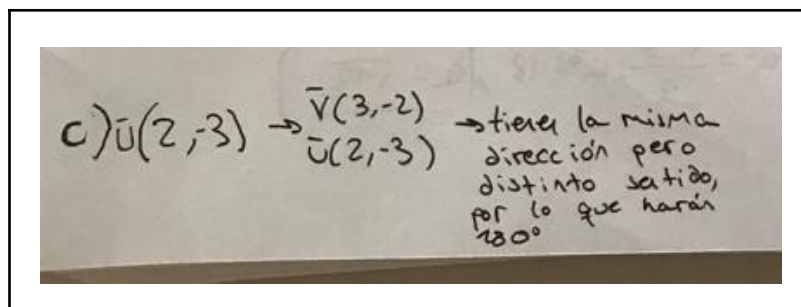 c) ū(2,-3) → v̄(3,-2)
ū(2,-3) → tienen la misma
dirección pero
distinto sentido,
por lo que harán
180°